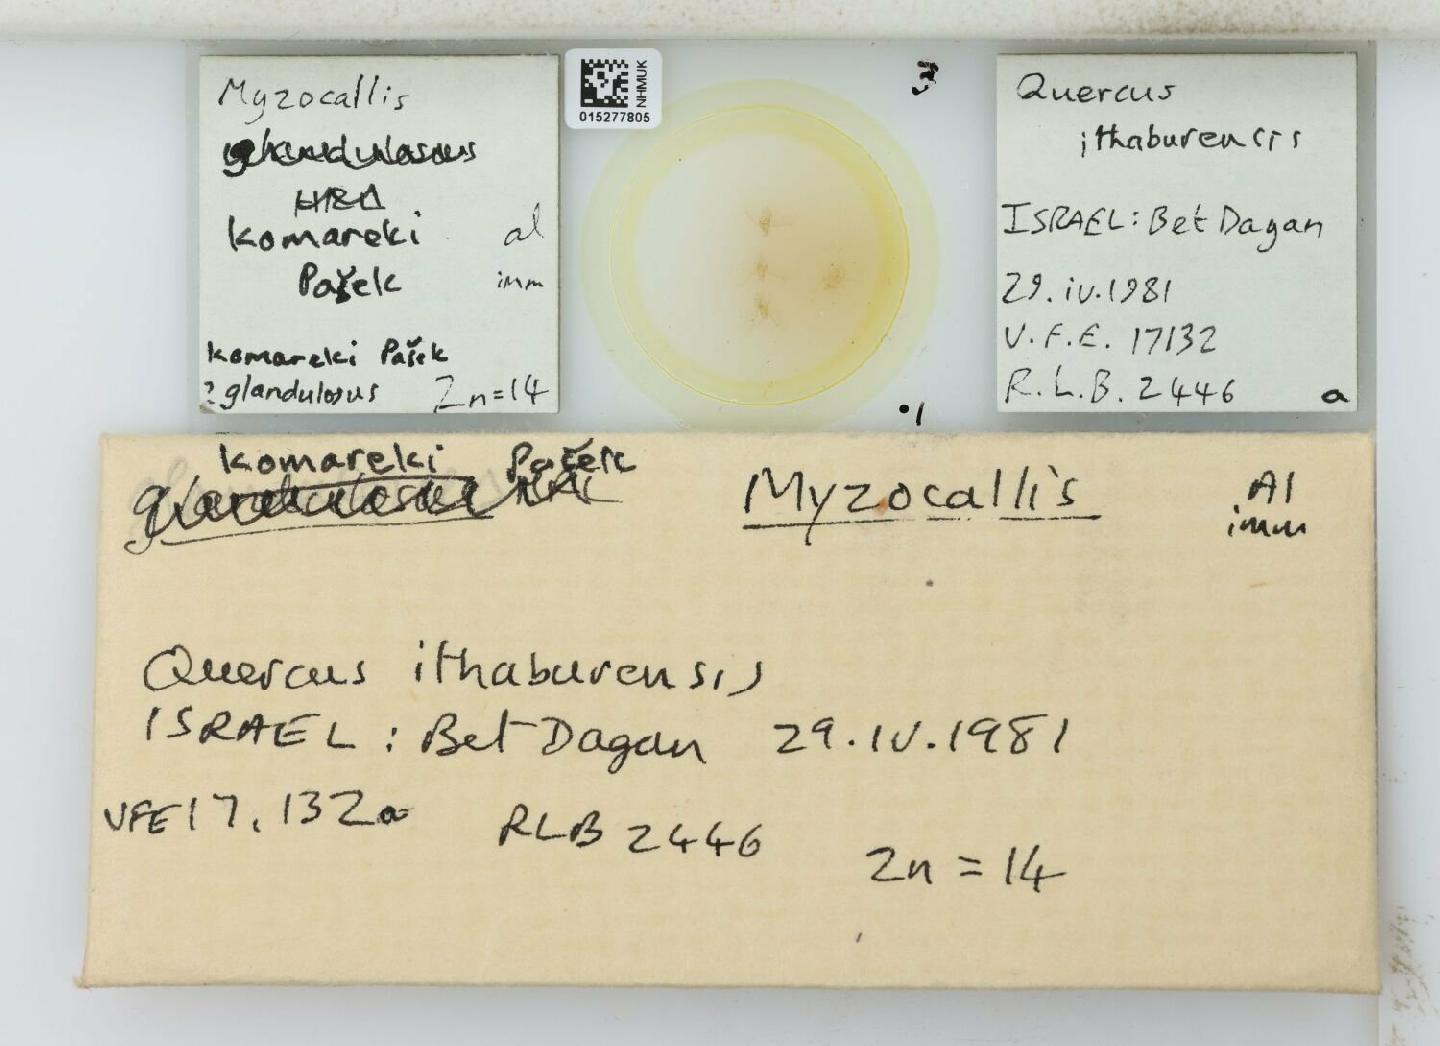 Myzocallis
glandulosus
HRL
komareki al
Pašek imm
komareki Pašek
? glandulosus 2n=14
NHMUK
015277805
3
•1
Quercus
ithaburensis
ISRAEL: Bet Dagan
29.iv.1981
V.F.E. 17132
R.L.B. 2446 a
komareki Pašek
glandulosus
Myzocallis Al
imm
Quercus ithaburensis
ISRAEL: Bet Dagan 29.IV.1981
VFE 17,132a RLB 2446
2n = 14